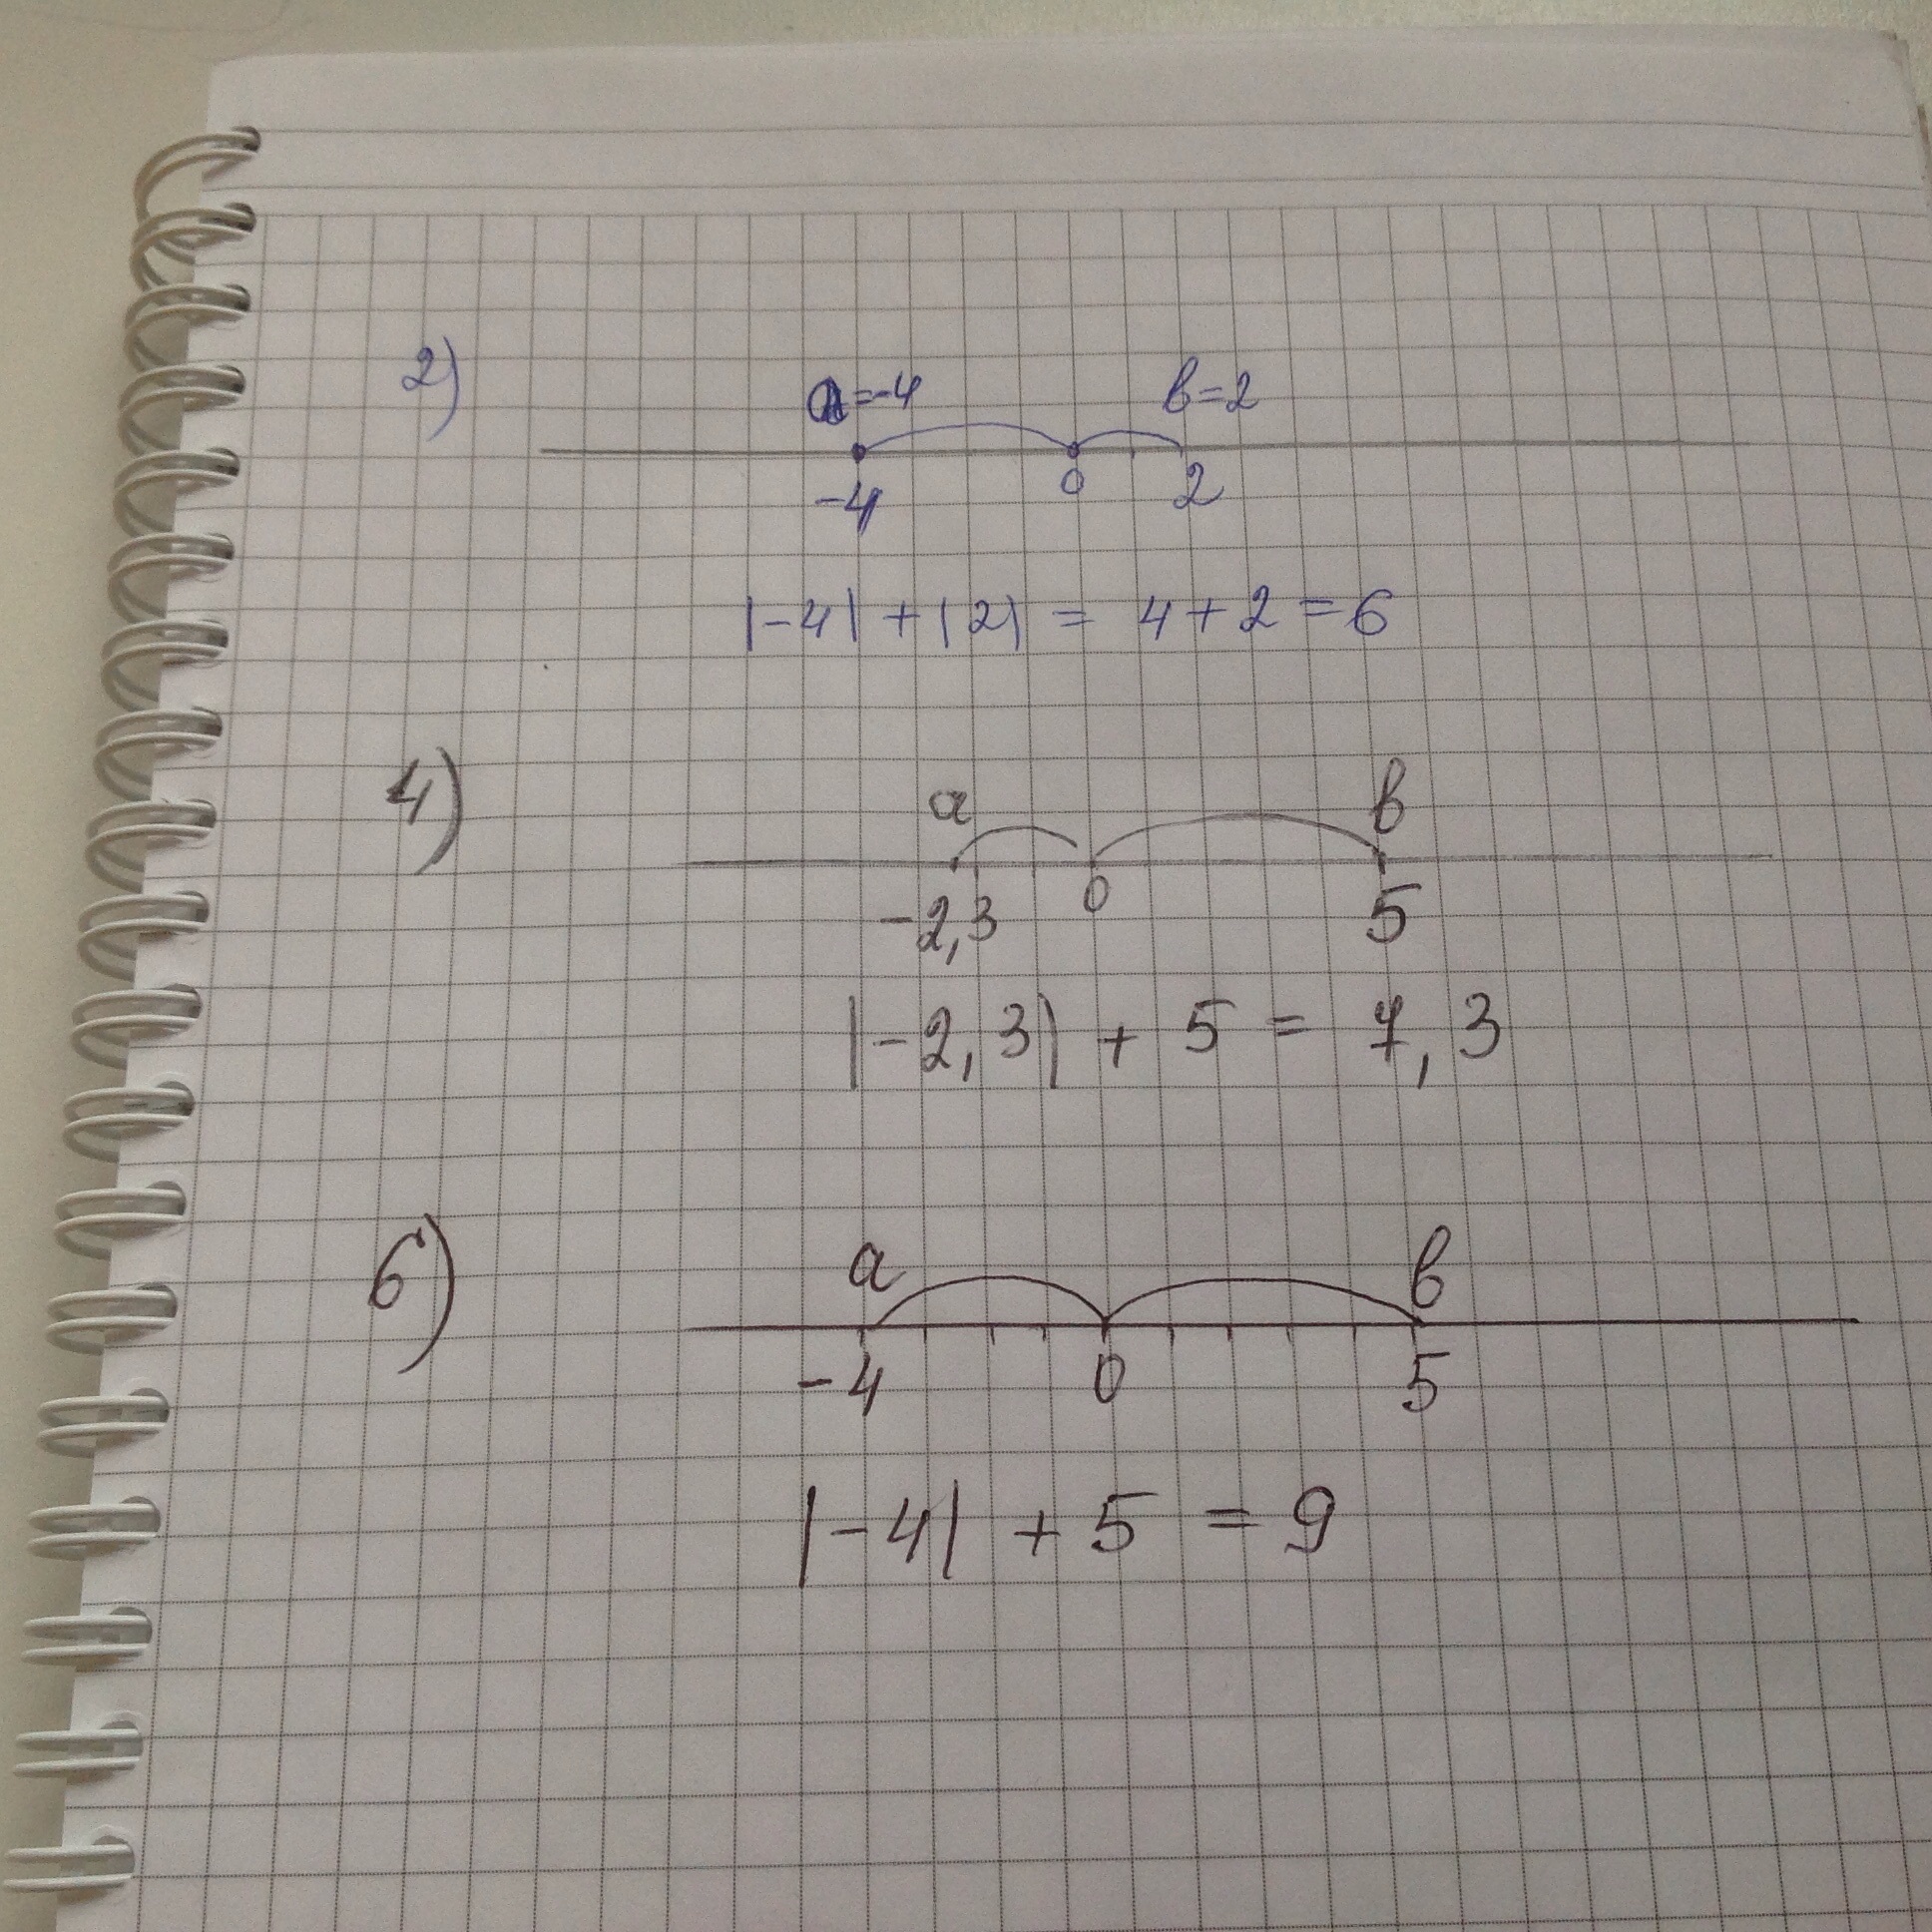 2)
a=-4 b=2
-4 0 2
|-4| + |2| = 4 + 2 = 6
4)
a b
-2,3 0 5
|-2,3| + 5 = 7,3
6)
a b
-4 0 5
|-4| + 5 = 9